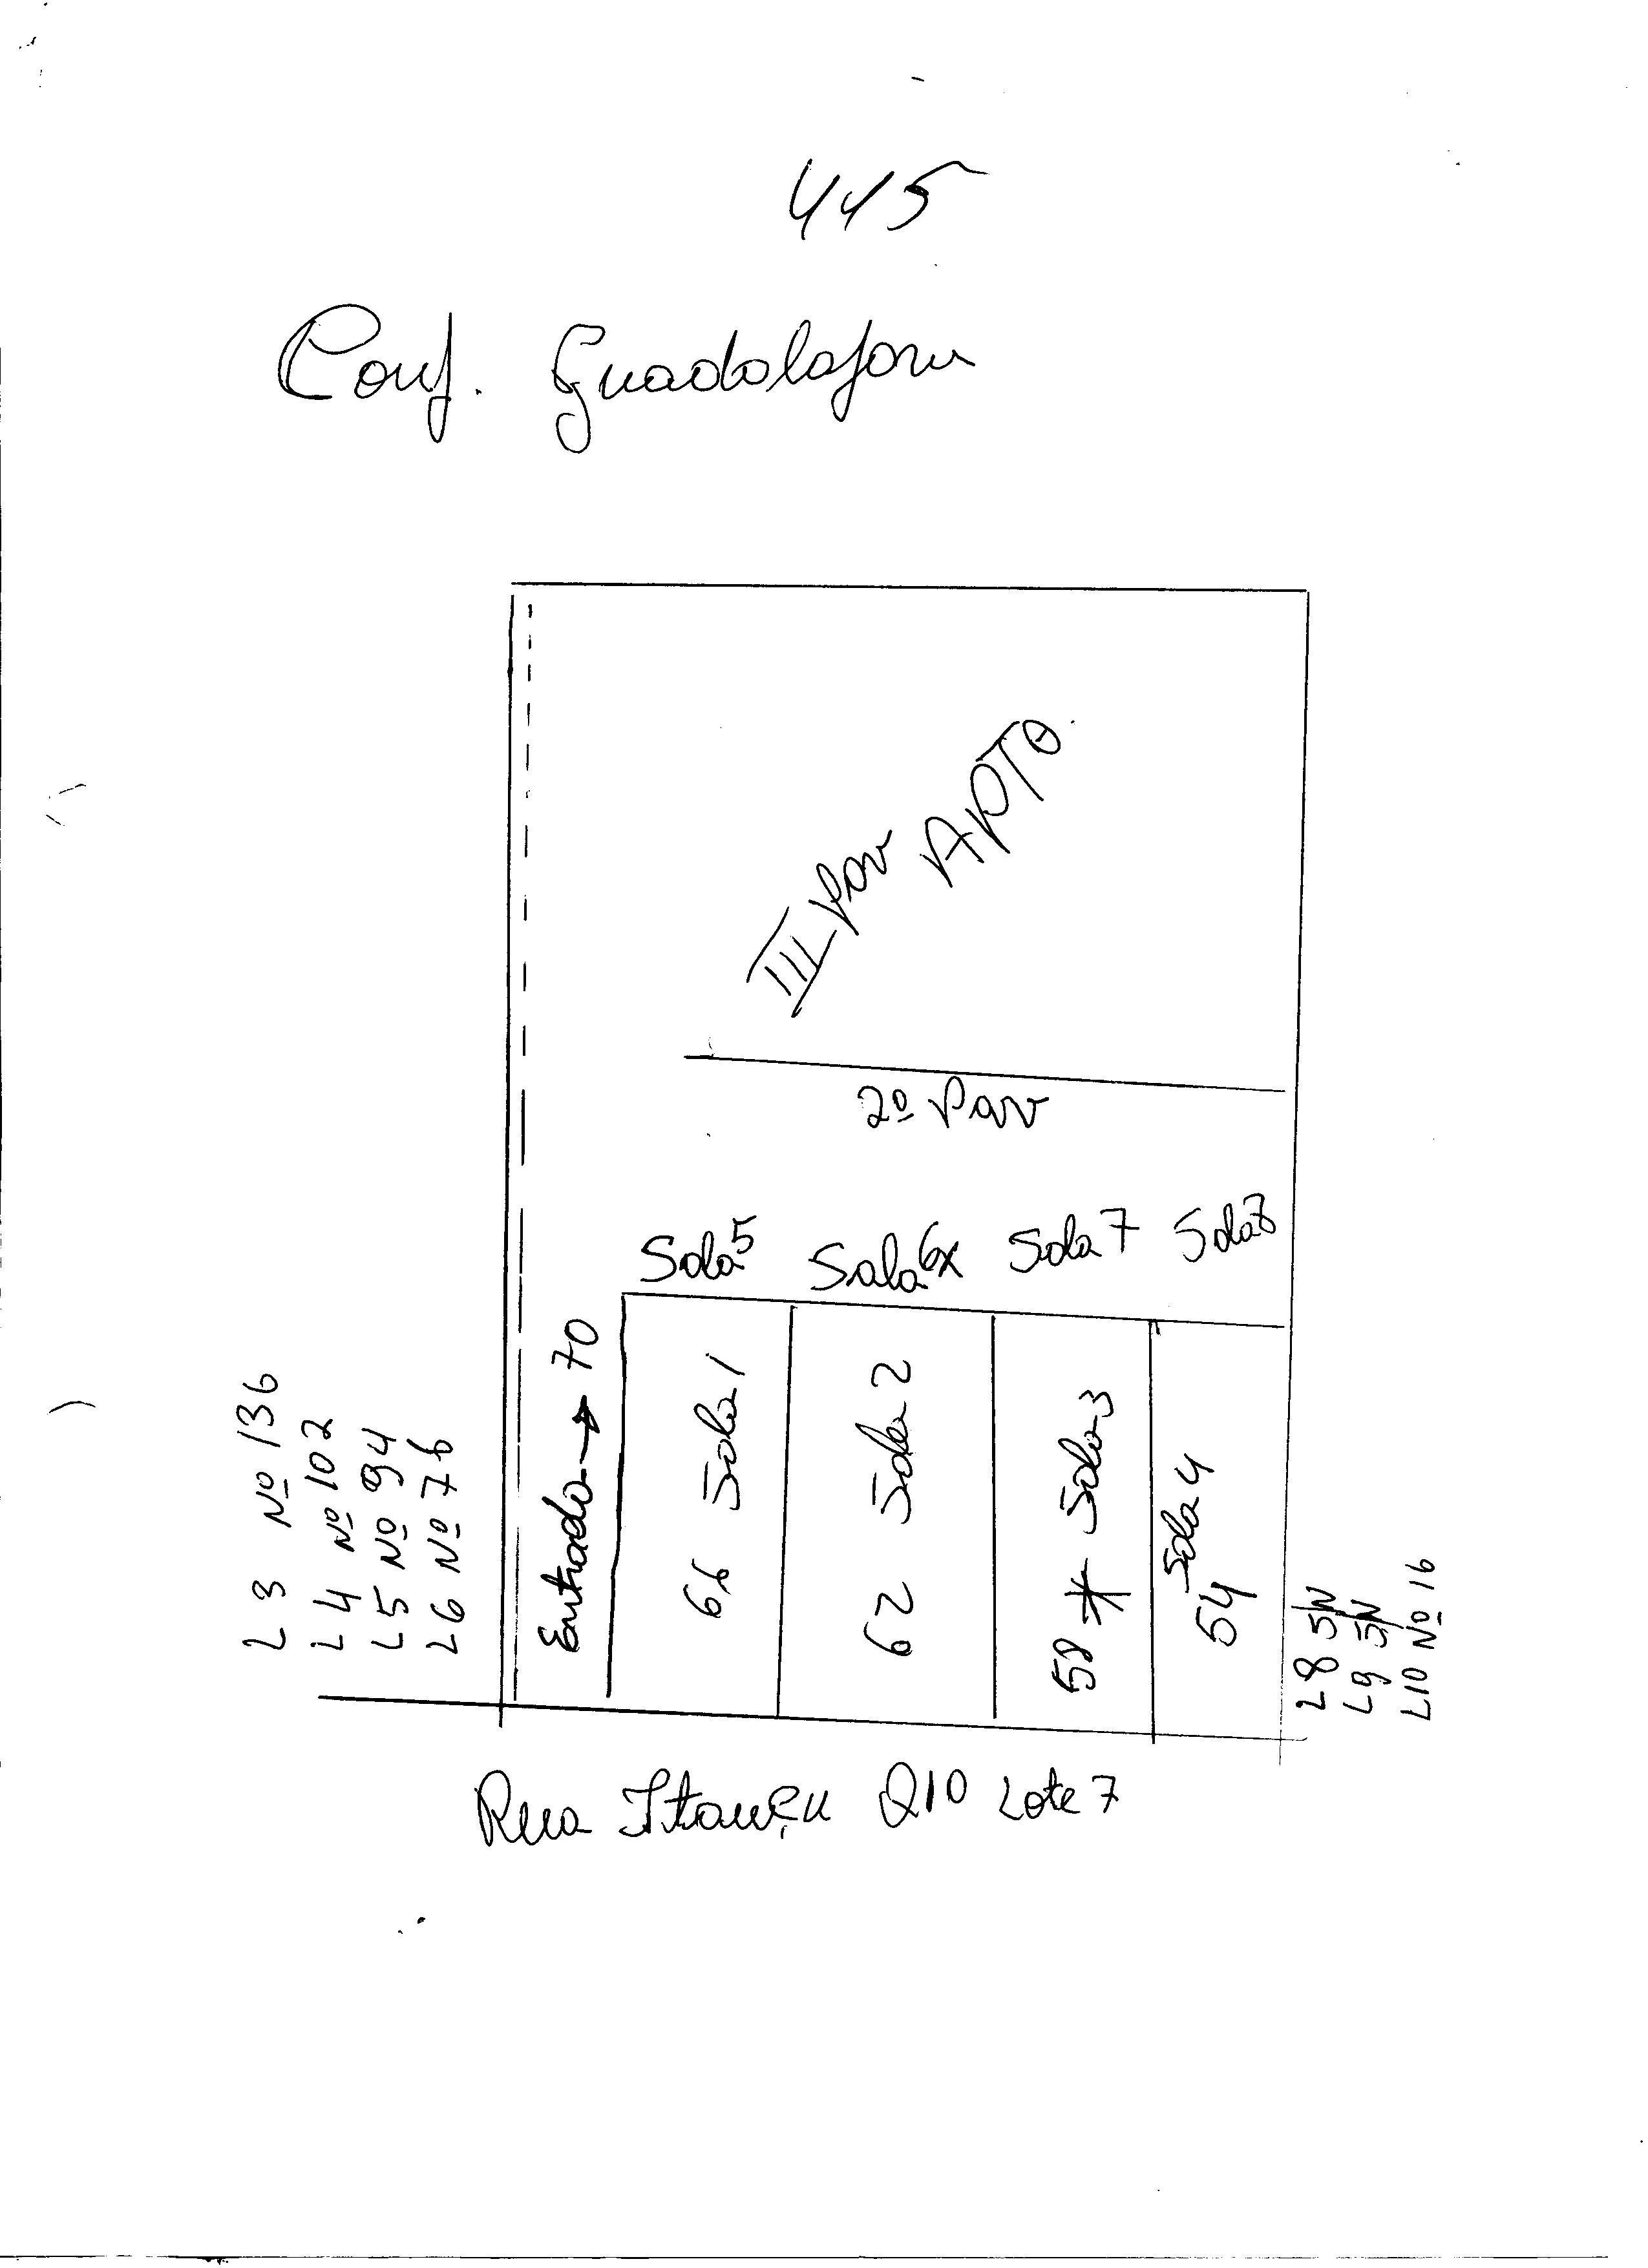 445
Conf. Guadalajara
III Pav APTO
2º Pav
Sala 5
Sala 6x
Sala 7
Sala 8
Entrada → 70
66 Sala 1
62 Sala 2
58 * Sala 3
54 Sala 4
L3 Nº 136
L4 Nº 102
L5 Nº 94
L6 Nº 76
L8 S/N
L9 S/N
L10 Nº 16
Rua Itauçu Q10 Lote 7